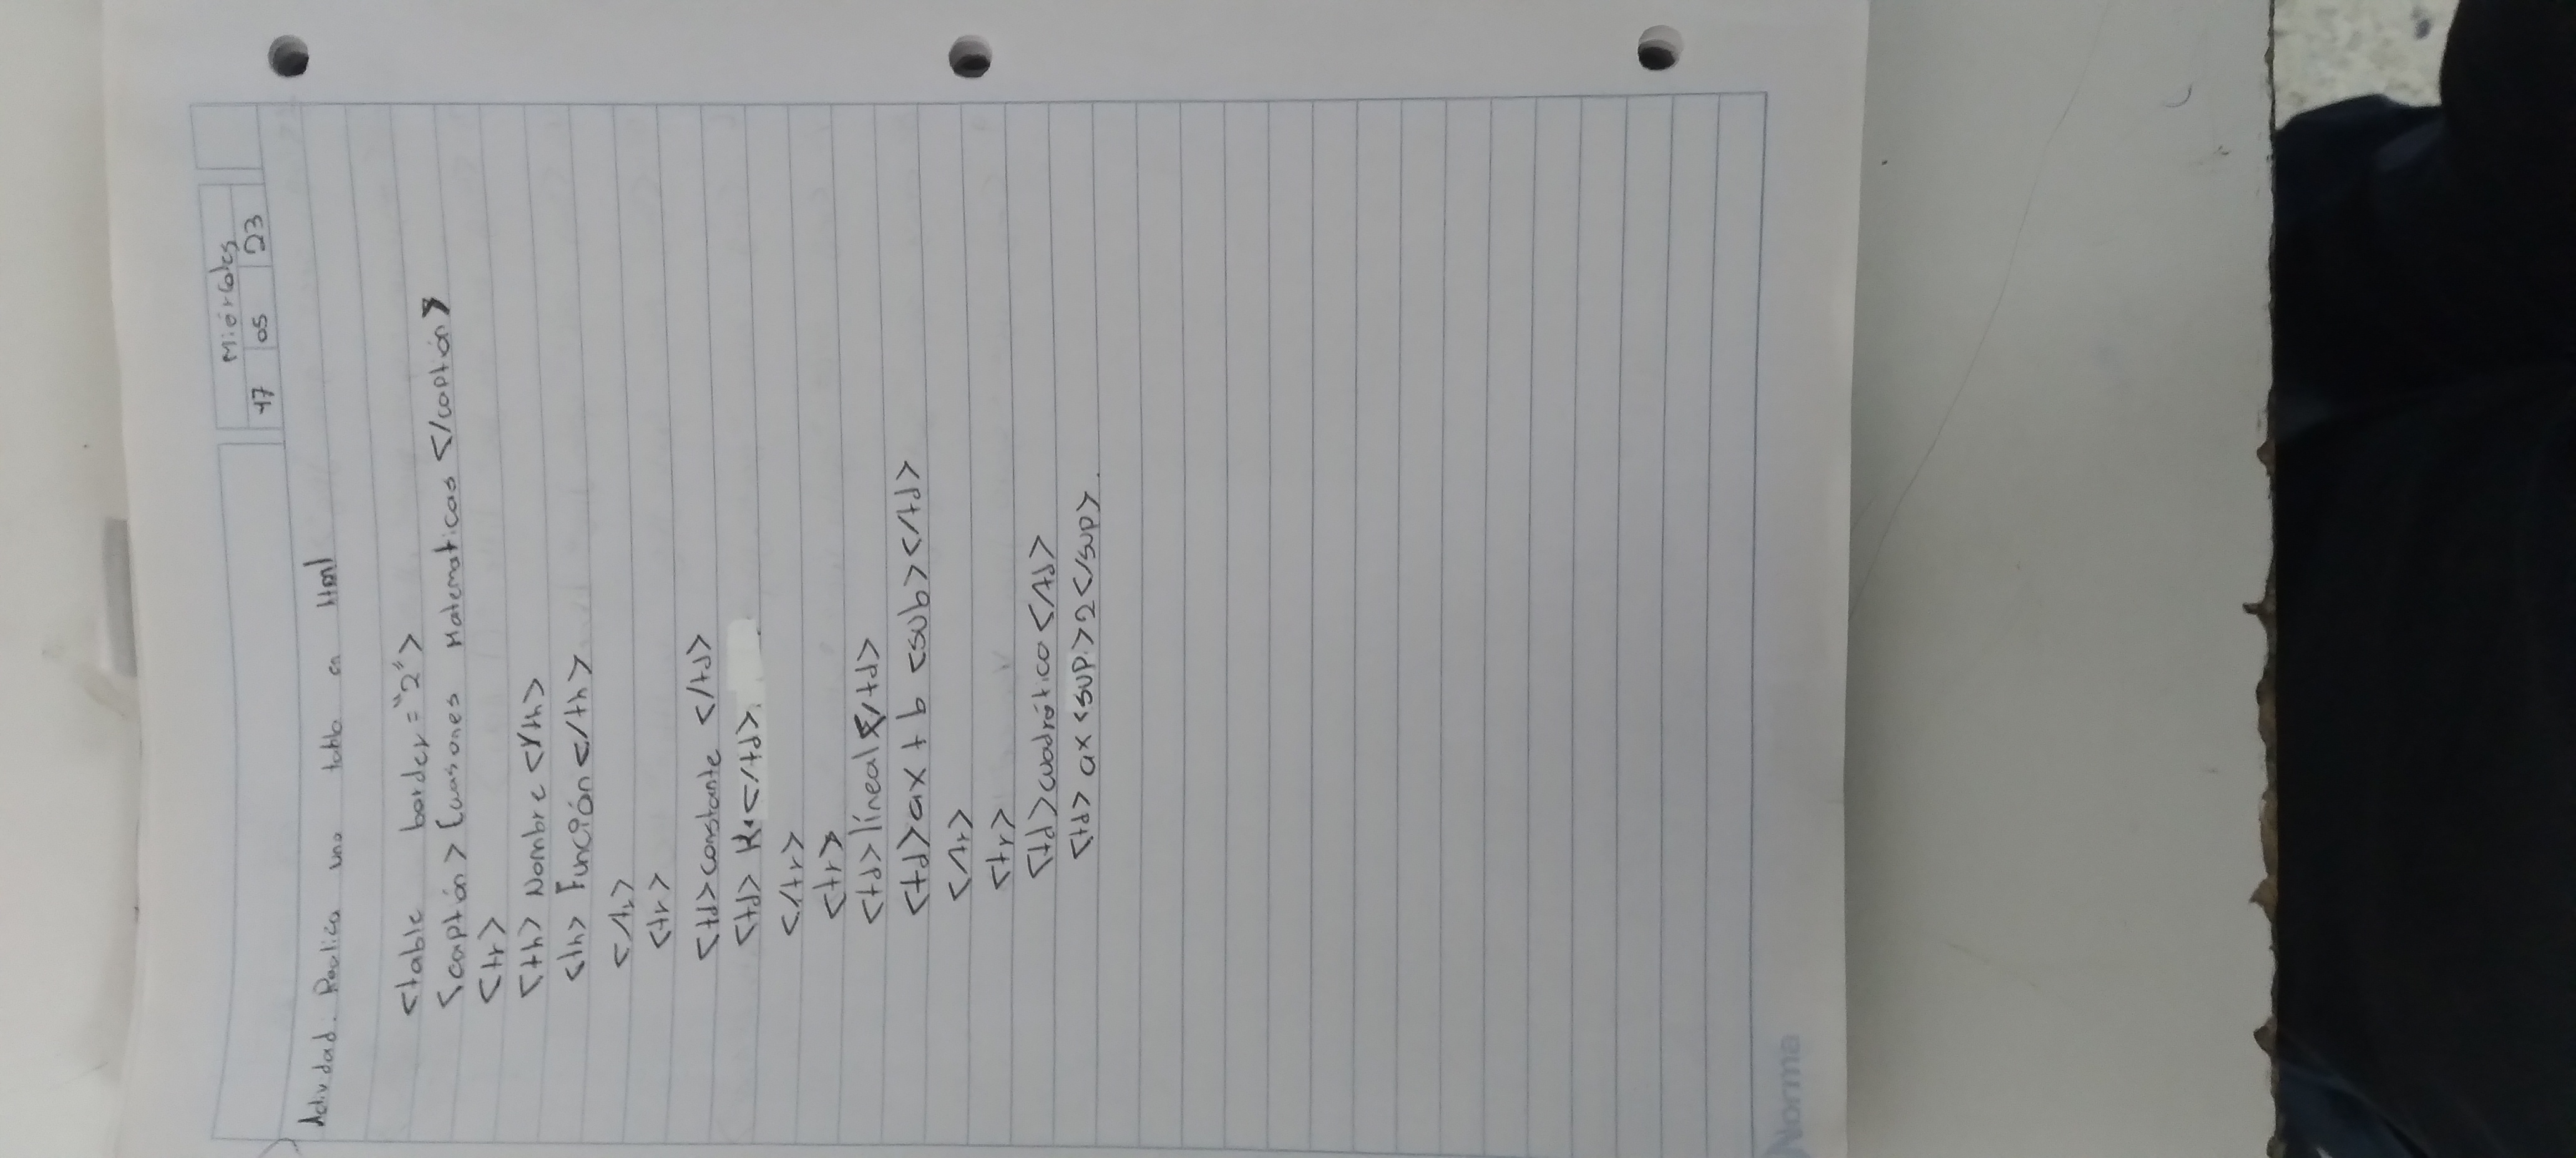 Miércoles
17 05 23
Actividad: Realica una tabla en html
<table border="2">
<captión> Ecuasones Matematicas </captión>
<tr>
<th> Nombre </th>
<th> Función </th>
</tr>
<tr>
<td>constante </td>
<td> K </td>.
</tr>
<tr>
<td>líneal </td>
<td>ax + b <sub></td>
</tr>
<tr>
<td>cuadrático</td>
<td> ax <sup>2</sup>.
Norma